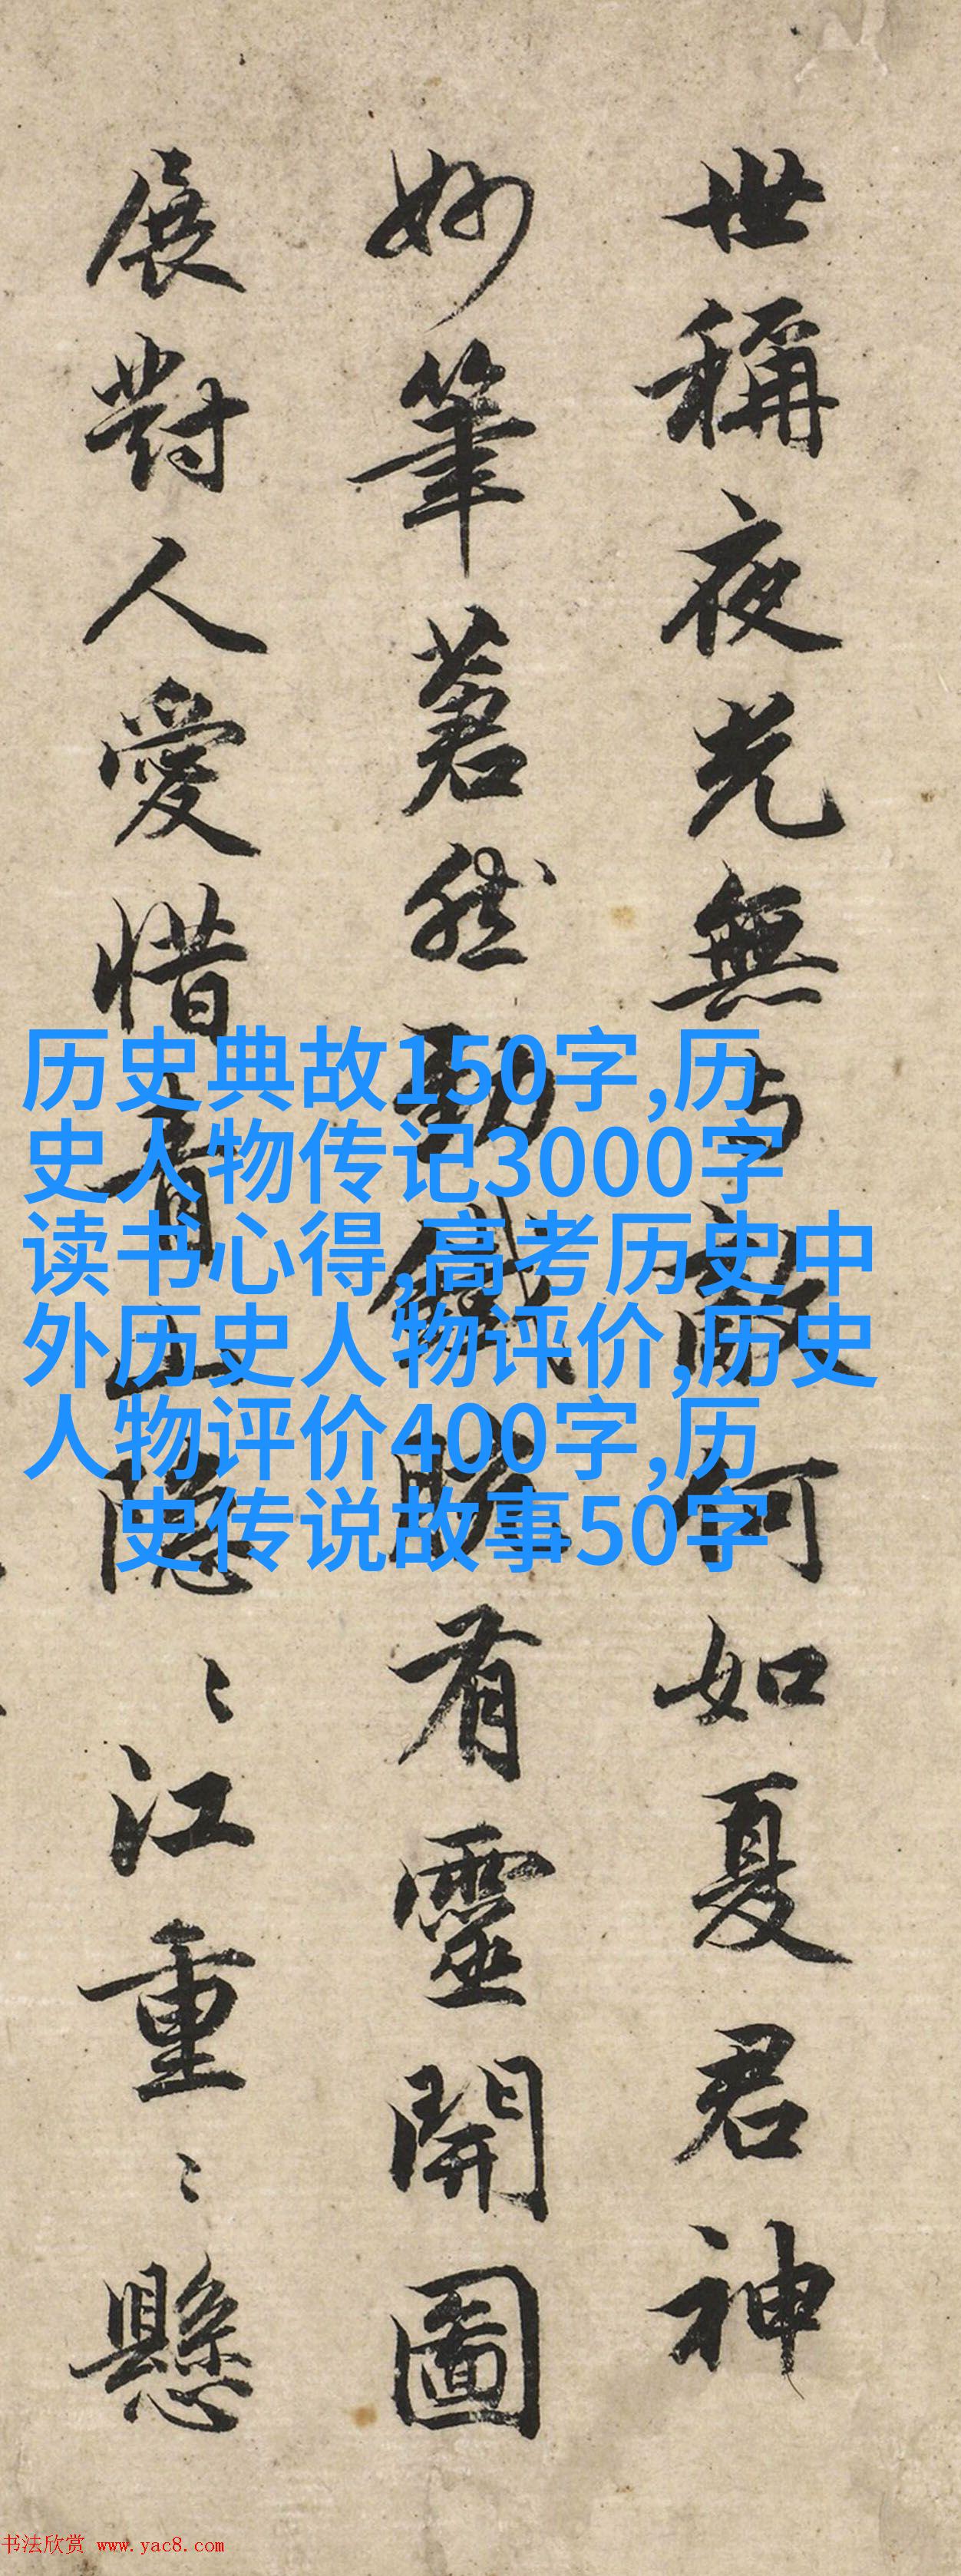 世稱夜光無与敵何如夏君神
妙筆然有靈開圖
展對人愛惜青山隐〻江重〻懸
历史典故150字,历
史人物传记3000字
读书心得,高考历史中
外历史人物评价,历史
人物评价400字,历
史传说故事50字
书法欣赏 www.yac8.com